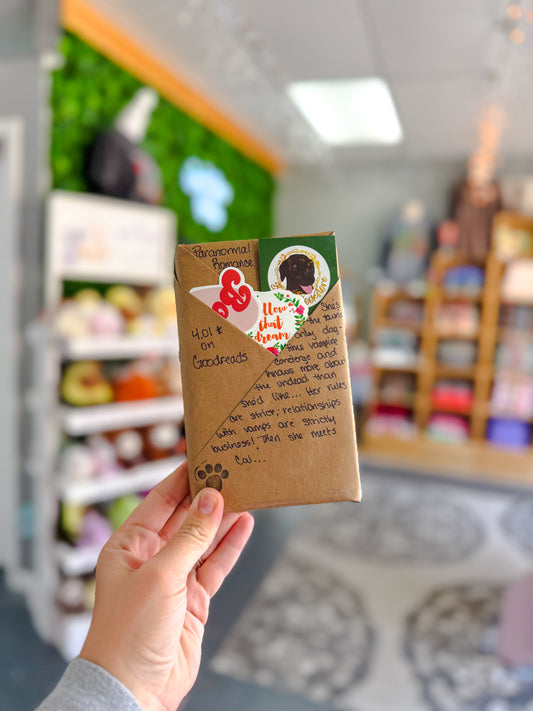 Paranormal
Romance
4.01 ★
on
Goodreads
&
chat
dream
She's
the town's
only day-
time vampire
concierge and
knows more about
the undead than
she'd like... Her rules
are strict, relationships
with vamps are strictly
business! Then she meets
Cal...